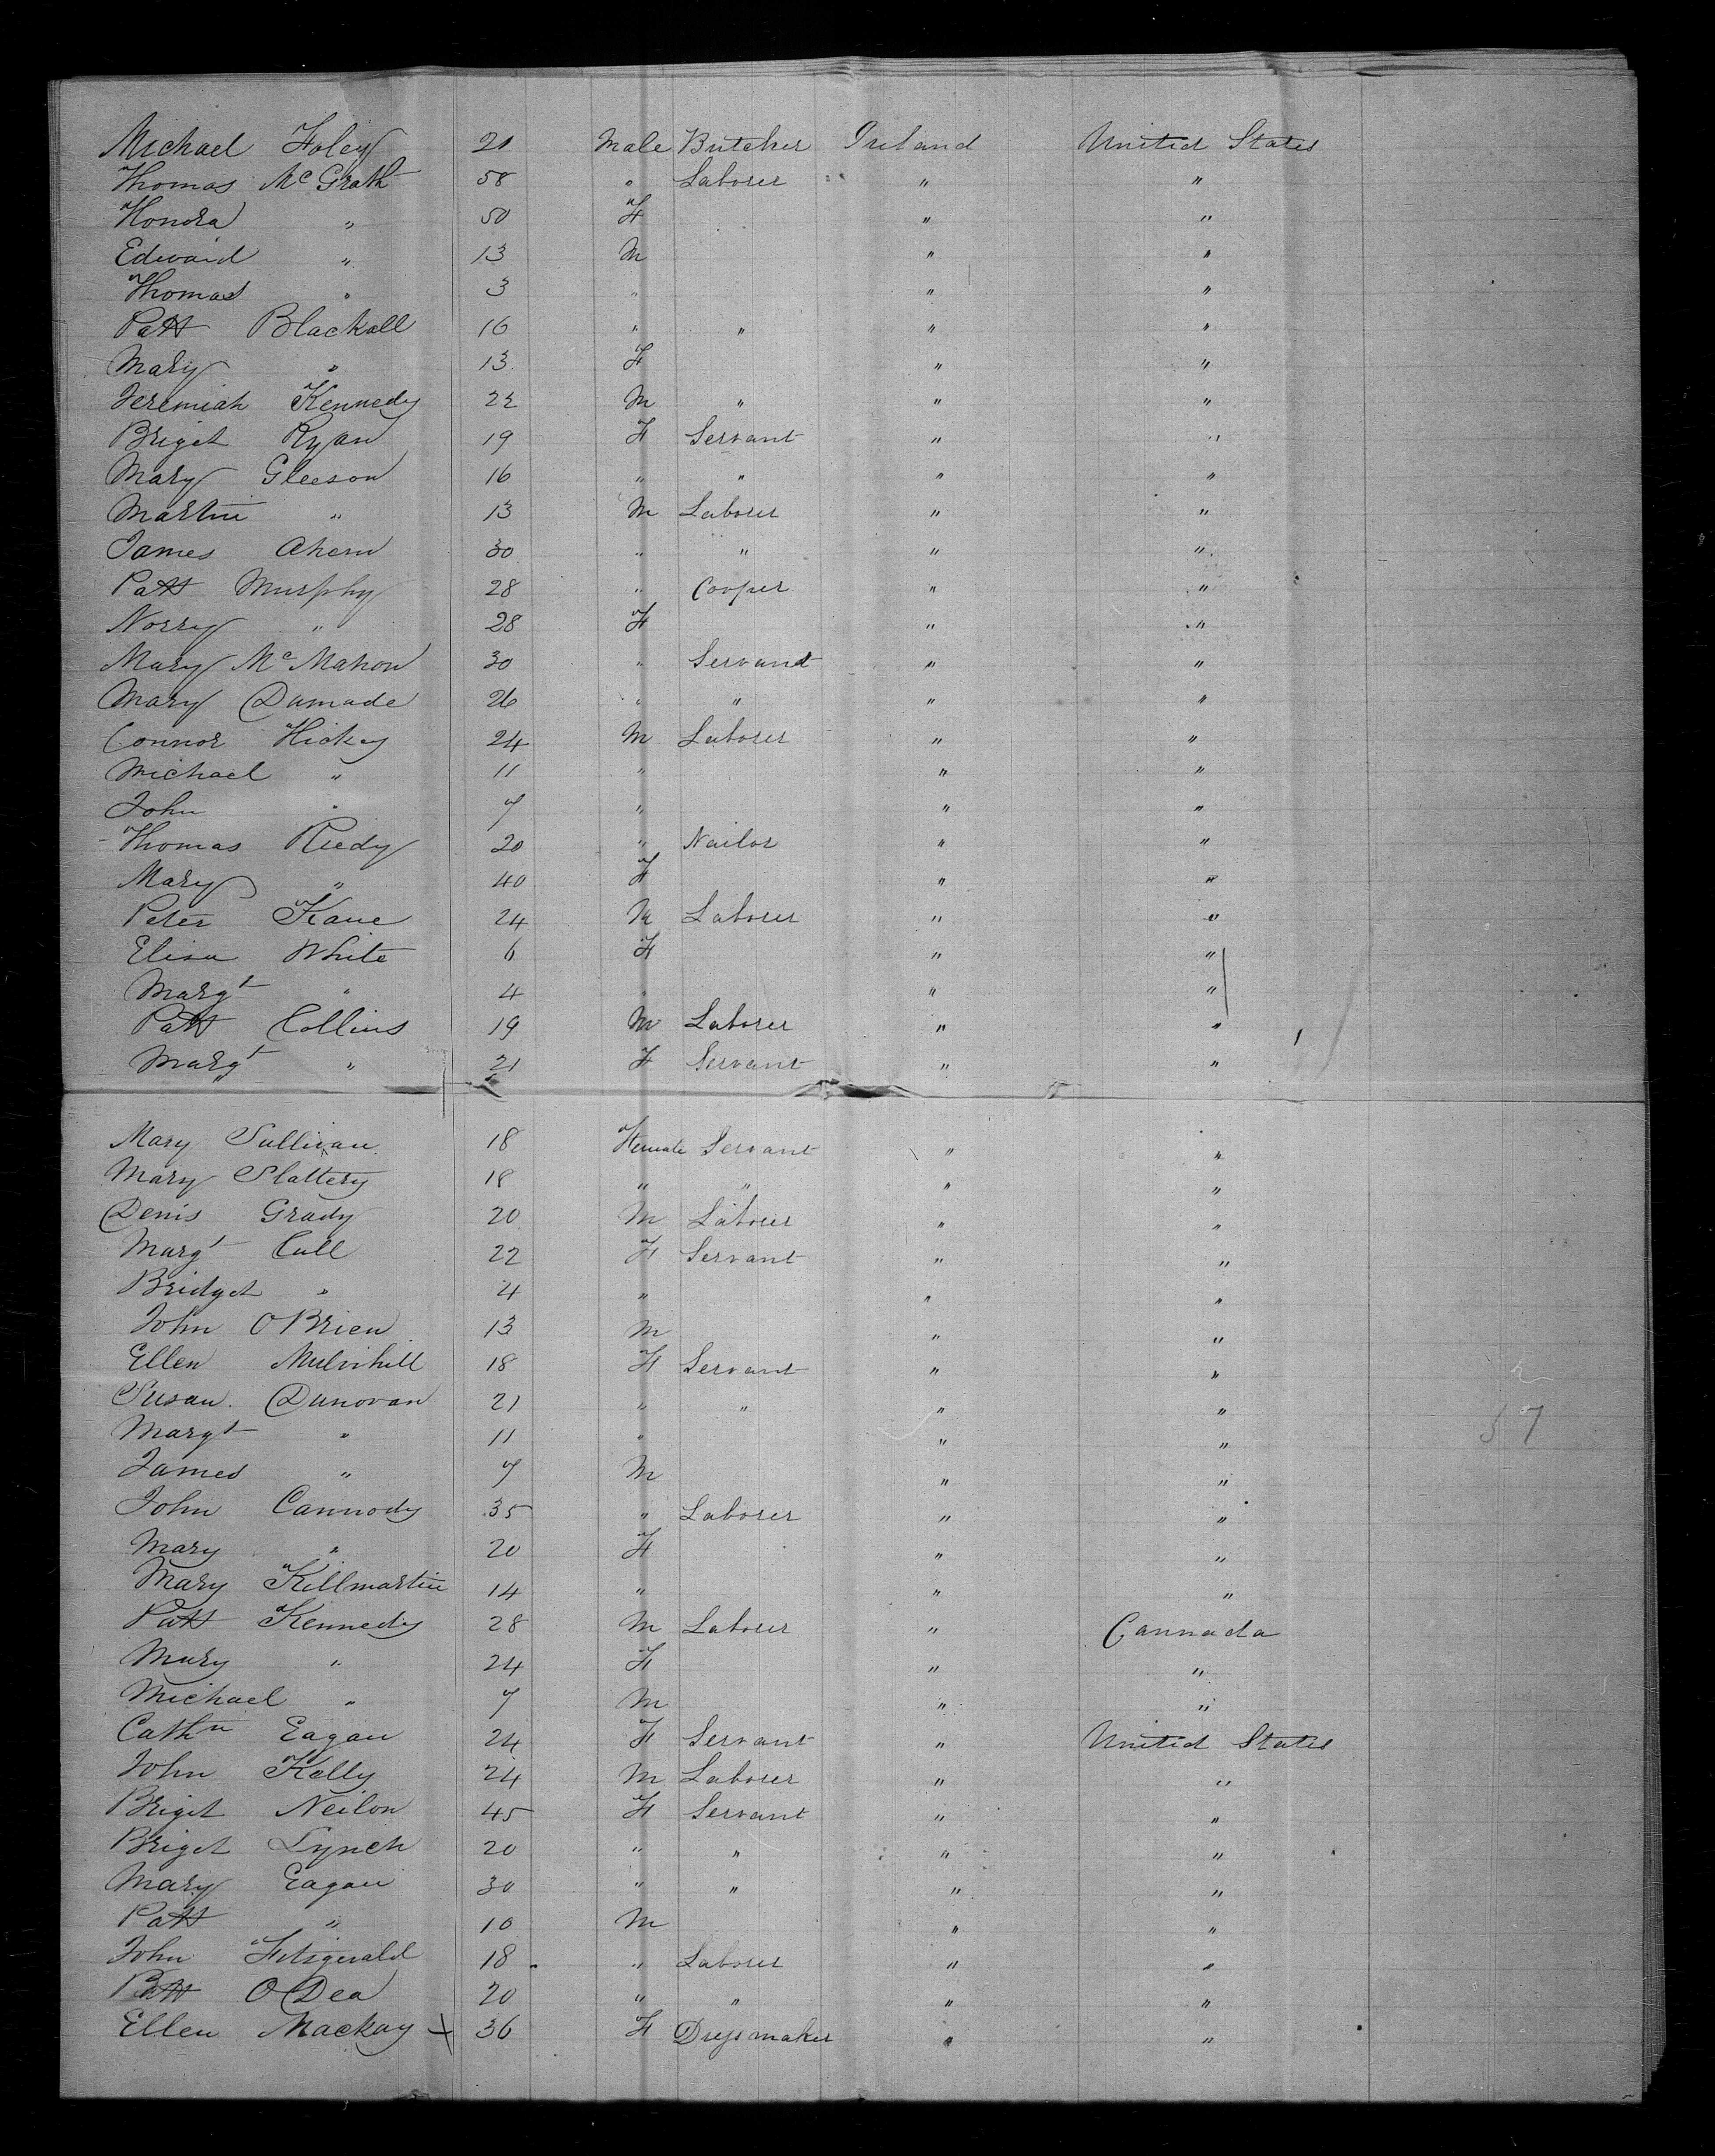 Michael Foley 21 Male Butcher Ireland United States
Thomas McGrath 58 " Laborer " "
Honora " 50 F " "
Edward " 13 M " "
Thomas " 3 " " "
Patt Blackall 16 " " " "
Mary " 13 F " "
Jeremiah Kennedy 22 M " " "
Briget Ryan 19 F Servant " "
Mary Gleeson 16 " " " "
Martin " 13 M Laborer " "
James Ahern 30 " " " "
Patt Murphy 28 " Cooper " "
Norry " 28 F " "
Mary McMahon 30 " Servant " "
Mary Dumade 26 " " " "
Connor Hickey 24 M Laborer " "
Michael " 11 " " "
John " 7 " " "
Thomas Reedy 20 " Nailor " "
Mary " 40 F " "
Peter Kane 24 M Laborer " "
Elisa White 6 F " "
Margt " 4 " " "
Patt Collins 19 M Laborer " "
Margt " 21 F Servant " "
Mary Sullivan 18 Female Servant " "
Mary Slattery 18 " " " "
Denis Grady 20 M Laborer " "
Margt Cull 22 F Servant " "
Bridget " 4 " " "
John OBrien 13 M " "
Ellen Mulvihill 18 F Servant " "
Susan Dunovan 21 " " " "
Margt " 11 " " "
James " 7 M " "
John Cannody 35 " Laborer " "
Mary " 20 F " "
Mary Killmartin 14 " " "
Patt Kennedy 28 M Laborer " Cannada
Mary " 24 F " "
Michael " 7 M " "
Cathn Eagan 24 F Servant " United States
John Kelly 24 M Laborer " "
Briget Neilon 45 F Servant " "
Briget Lynch 20 " " " "
Mary Eagan 30 " " " "
Patt " 10 M " "
John Fitzgerald 18 " Laborer " "
Patt ODea 20 " " " "
Ellen Mackay + 36 F Dressmaker " "
57